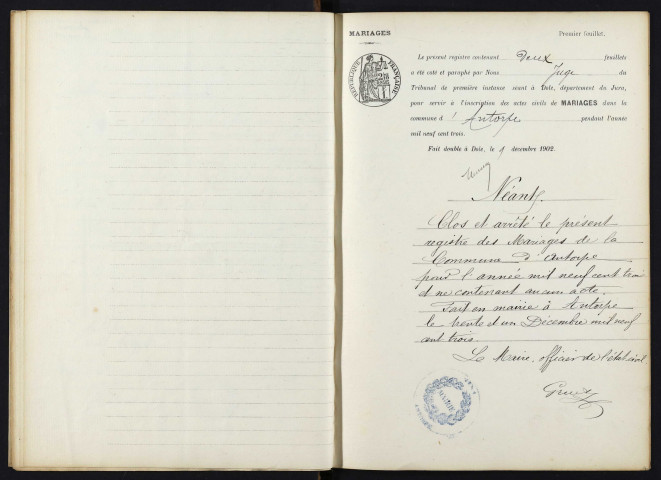 MARIAGES
Premier feuillet.
RÉPUBLIQUE FRANÇAISE
Le présent registre contenant Deux feuillets
a été coté et paraphé par Nous Juge du
Tribunal de première instance séant à Dole, département du Jura,
pour servir à l'inscription des actes civils de MARIAGES dans la
commune d' Antorpe pendant l'année
mil neuf cent trois.
Fait double à Dole, le 9 décembre 1902.
Néant.
Clos et arrêté le présent
registre des Mariages de la
Commune d'Antorpe
pour l'année mil neuf cent trois
et ne contenant aucun acte.
Fait en mairie à Antorpe
le trente et un Décembre mil neuf
cent trois.
Le Maire, officier de l'état civil